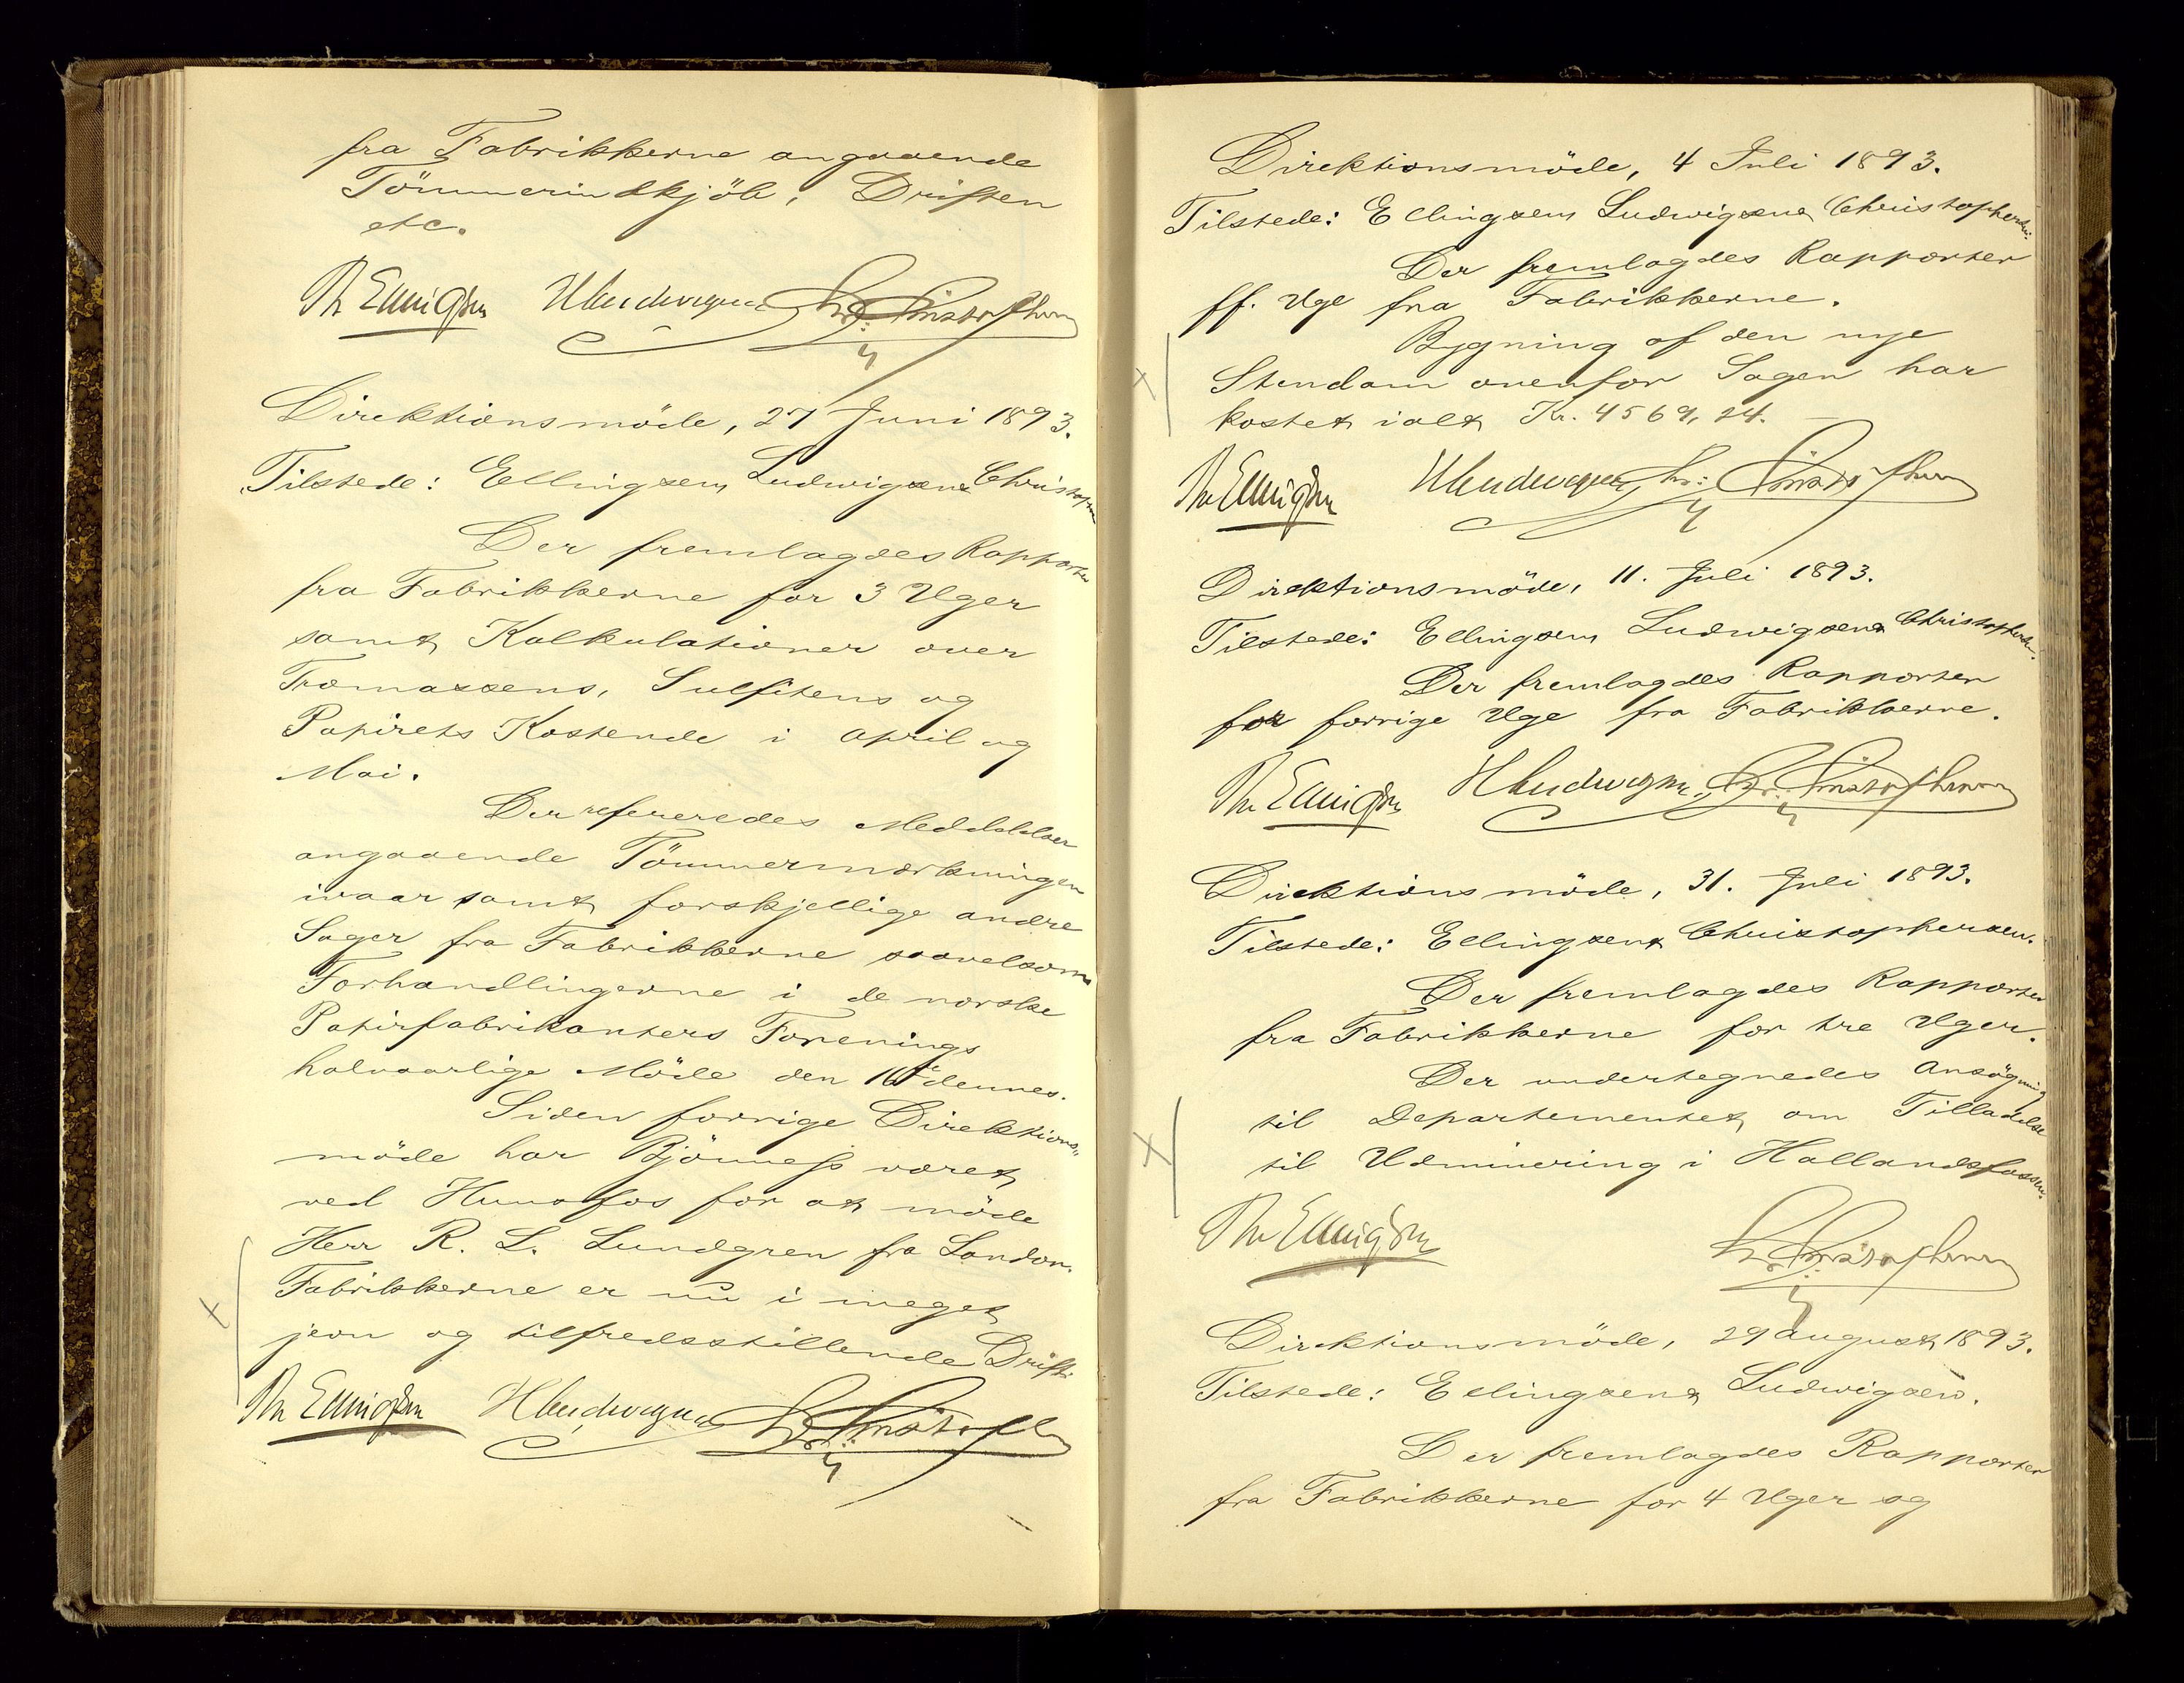 fra Fabrikkerne angaaende
Tömmerindkjöb, Driften
etc.
Th Ellingsen H Ludwigsen Chr. Christophersen
Direktionsmöde, 27 Juni 1893.
Tilstede: Ellingsen, Ludwigsen & Christophersen
Der fremlagdes Rapporter
fra Fabrikkerne for 3 Uger
samt Kalkulationer over
Træmassens, Sulfitens og
Papirets Kostende i April og
Mai.
Der refereredes Meddelelser
angaaende Tömmermærkningen
ivaar samt forskjellige andre
Sager fra Fabrikkerne saavelsom
Forhandlingerne i de norske
Papirfabrikanters Forenings
halvaarlige Möde den 16de dennes.
Siden forrige Direktions„
möde har Bjönness været
ved Hunsfos for at möde
Herr R. L. Lundgren fra London.
Fabrikkerne er nu i meget
jevn og tilfredsstillende Drift.
Th Ellingsen H Ludwigsen Chr. Christophersen
Direktionsmöde, 4 Juli 1893.
Tilstede: Ellingsen, Ludwigsen & Christophersen.
Der fremlagdes Rapporter
ff. Uge fra Fabrikkerne.
Bygning af den nye
Stendam ovenfor Sagen har
kostet ialt Kr. 4569,24. —
Th Ellingsen H Ludwigsen Chr. Christophersen
Direktionsmöde, 11. Juli 1893.
Tilstede: Ellingsen, Ludwigsen & Christophersen.
Der fremlagdes Rapporter
for forrige Uge fra Fabrikkerne.
Th Ellingsen H Ludwigsen Chr. Christophersen
Direktionsmöde, 31. Juli 1893.
Tilstede: Ellingsen & Christophersen.
Der fremlagdes Rapporter
fra Fabrikkerne for tre Uger.
Der undertegnedes Ansögning
til Departementet om Tilladelse
til Udminering i Hallandsfossen.
Th Ellingsen Chr. Christophersen
Direktionsmöde, 29 August 1893.
Tilstede: Ellingsen & Ludwigsen.
Der fremlagdes Rapporter
fra Fabrikkerne for 4 Uger og